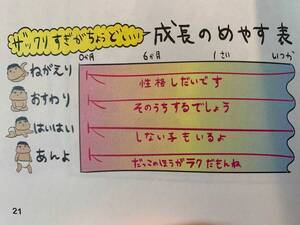 ザックリすぎがちょうどいい 成長のめやす表
0か月 6か月 1さい いつか
ねがえり 性格しだいです
おすわり そのうちするでしょう
はいはい しない子もいるよ
あんよ だっこのほうがラクだもんね
21